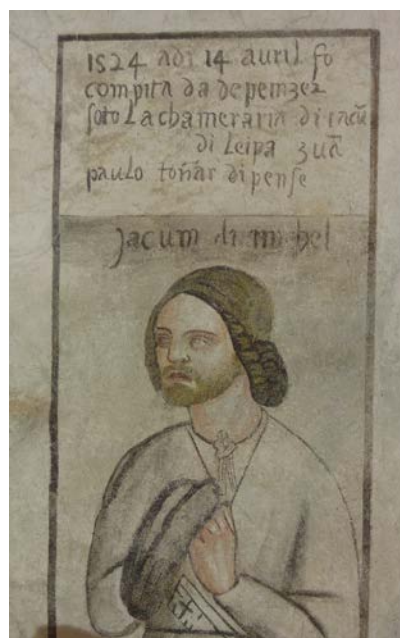 1524 adi 14 auril fo
compita da depenzer
soto La chameraria di iacũ
di Leipa zuã
paulo toñar di pense
jacum di mihel